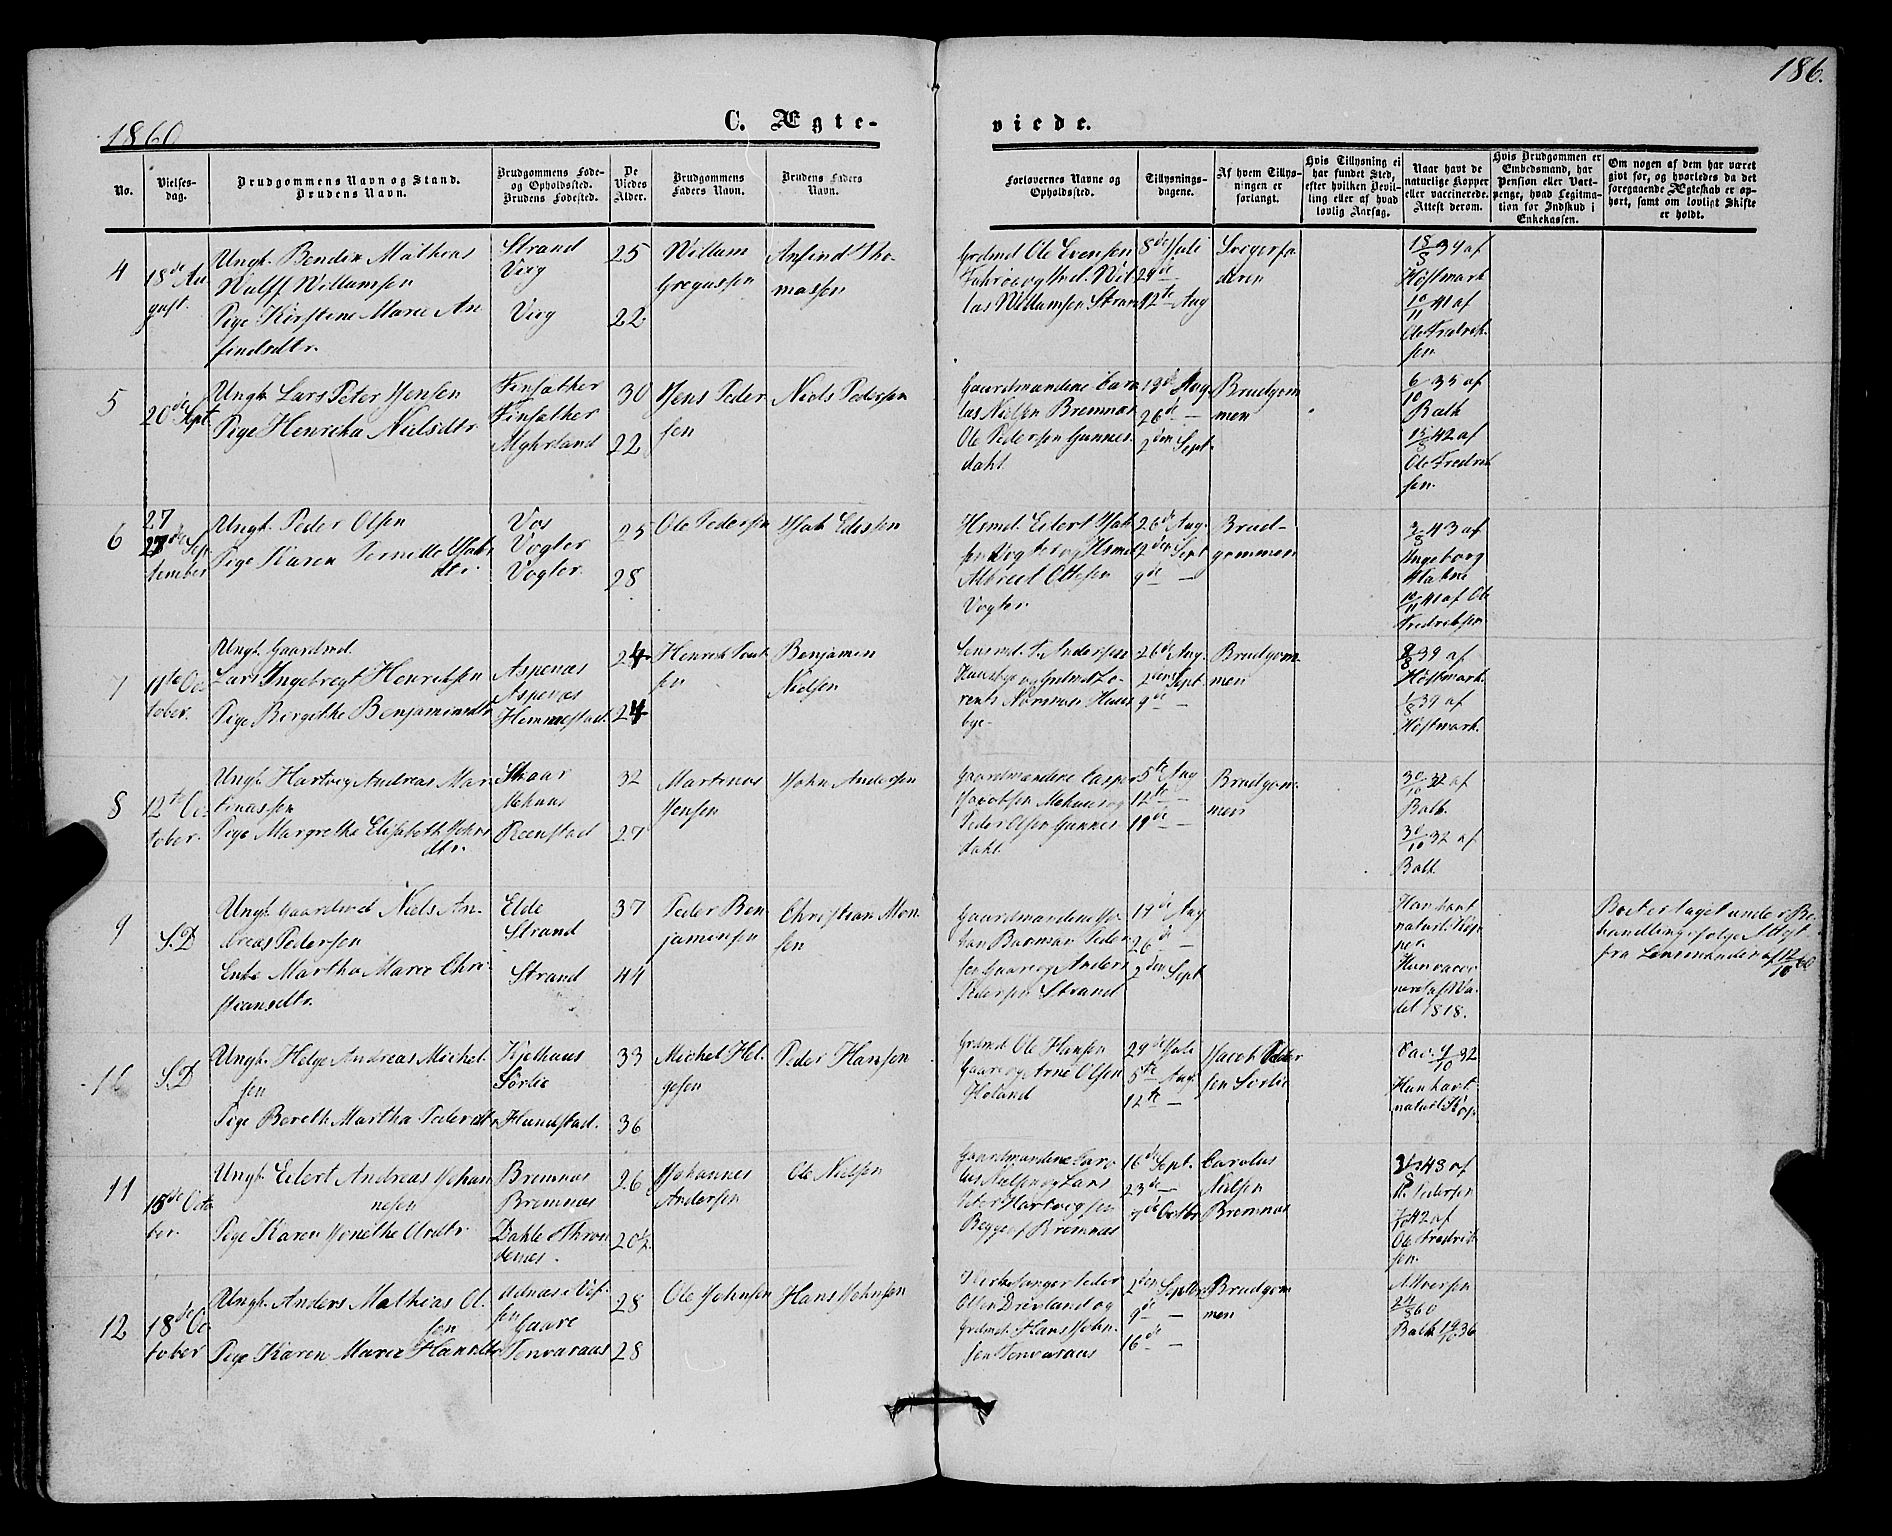 186.
1860
C. Ægteviede.
No.
Vielsesdag.
Brudgommens Navn og Stand.
Brudens Navn.
Brudgommens Føde-
og Opholdssted.
Brudens Fødested.
De
Viedes
Alder.
Brudgommens
Faders Navn.
Brudens Faders
Navn.
Forlovernes Navne og
Opholdssted.
Tillysnings-
dagene.
Af hvem Tillys-
ningen er
forlangt.
Hvis Tillysning ei
har fundet Sted,
efter hvilken Bevil-
ling eller af hvad
lovlig Aarsag.
Naar havt de
naturlige Kopper
eller vaccinerede.
Attest derom.
Hvis Brudgommen er
Embedsmand, har
Pension eller Vart-
penge, hvad Legitima-
tion for Indskud i
Enkekassen.
Om nogen af dem har været
givt før, og hvorledes da det
foregaaende Ægteskab er op-
hørt, samt om lovligt Skifte
er holdt.
4
18de Au-
gust.
Ungk. Bendix Mathias
Wulff Willumsen
Pige Kirstine Marie An-
findsdtr.
Strand
Vig
Vig
25
22
Willum
Gregussen
Anfind Tho-
massen
Grdmd Ole Evensen
las Willumsen Strand
8de Juli
29de
12te Aug
Svigerfa-
deren
18/8 34 af
Høstmark
10/11 41 af
Ole Fredrik-
sen.
5
20de Spt.
Ungk. Lars Peter Jensen
Pige Henrika Nielsdtr
Finsæther
Finsæther
Myhrland
30
22
Jens Peder
sen
Niels Pedersen
Gaardmændene Caro
lus Nielsen Bremnæs
Ole Pedersen Gunnes-
dahl.
19de Aug.
26de —
2den Sept.
Brudgom
men
6/10 35 af
Balk
15/8 42 af
Ole Fredrik
sen.
6
27
27de Sep
tember
Ungk. Peder Olsen
Pige Karen Pernille Isak
dtr.
Vos
Vogter
Vogter.
25
28
Ole Pedersen
Isak Edissen
Hsmd. Eilert Isak-
sen Vogter og Hsmd
Albrect Ottesen
Vogter.
26de Aug.
2den Sept
9de —
Brud-
gommen
3/8 43 af
Ingeborg
Hakne
10/11 41 af Ole
Fredriksen
7
11te Oc
tober.
Ungk. Gaardmd.
Lars Ingebregt Henriksen
Pige Birgithe Benjamindtr
Aspenæs
Aspenæs
Hemmestad.
24
24
Henrik Poul
sen
Benjamin
Nielsen
Lensmd. P. Andersen
Huusbye og Grdmd Lo-
rents Normann Huus
bye.
26de Aug.
2den Sept.
9de —
Brudgom-
men
8/8 39 af
Høstmark
1/8 39 af
Høstmark.
8
12te Oc-
tober.
Ungk. Hartvig Andreas Mar
tinussen
Pige Margrethe Elisabeth Johns
dtr.
Skaar
Mehuus
Reenstad
32
27
Martinus
Jensen
John Andersen
Gaardmændene Casper
Jacobsen Mehuus og
Peder Olsen Gunnes
dahl.
5te Aug
12te —
19de —
Brudgom-
men
30/10 32 af
Balk.
30/10 32 af
Balk
9
S.D
Ungk. Gaardmd Niels An-
dreas Pedersen
Enke Martha Marie Chri-
stiansdtr.
Elde
Strand
Strand
37
44
Peder Ben
jaminsen
Christian Mon
sen
Gaardmændene Jo-
han Barman Peder-
sen Gaare og Anders
Pedersen Strand
19de Aug
26de —
2den Sept
Han havt
naturl. Kop-
per.
Hun vacci-
neret af Wa-
del 1818.
Boet er taget under Be-
handling ifølge Attest
fra Lensmanden af 12/10 60
10
S.D
Ungk. Helge Andreas Michel-
sen
Pige Bereth Martha Pedersdtr
Kjelhuus
Sørlie
Hundstad.
33
36
Michel Hel-
gesen
Peder Hansen
Grdmd. Ole Hansen
Gaare og Arne Olsen
Høland
29de Juli
5te Aug.
12te —
Jacob Peder
sen Sørlie
Vac. 9/10 32
Hun havt
naturl. Kop.
11
15de Octo
ber.
Ungk. Eilert Andreas Johan
nesen
Pige Karen Jonethe Olsdtr
Bremnæs
Bremnæs
Dahle i Thron
denæs.
26
20½
Johannes
Andersen
Ole Nielsen
Gaardmændene Caro
lus Nielsen og Lars
Peter Hartvigsen
Begge af Bremnæs
16de Sept.
23de —
7de Octbr
Carolus
Nielsen
Bremnæs
3/8 43 af
N. Pedersen
7/10 42 af
Ole Fredrik
sen.
12
18de Oc
tober
Ungk. Anders Mathias Ol-
sen
Pige Karen Marie Hansdtr
Gaare
Tenvaraas
28
28
Ole Johnsen
Hans Johnsen
Kirkesanger Peder
Olsen Drevland og
Grdmd. Hans John-
sen Tenvaraas
2den Septbr.
9de —
16de —
Brudgom
men
Alversen
24/8 60
Balk 14/10 36